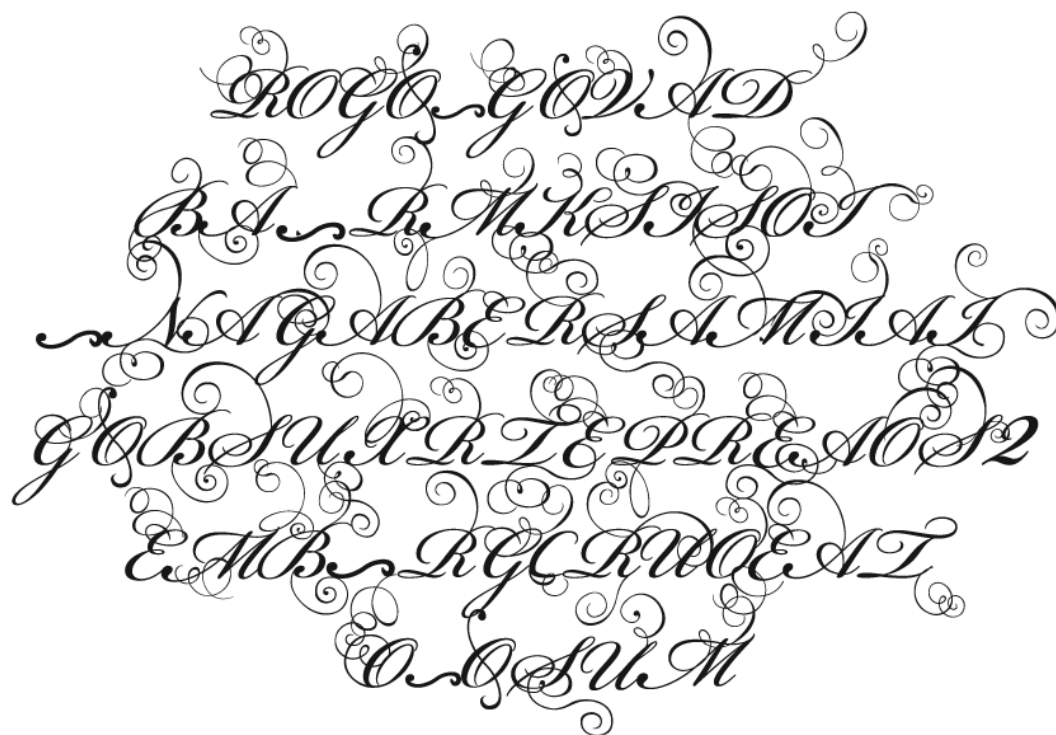 ROGO GOVAD
BA RMKSISOT
NAGABERSAMIAI
GOBSUXRTEPREAOS2
EMB RGCRUOEAT
O OSUM